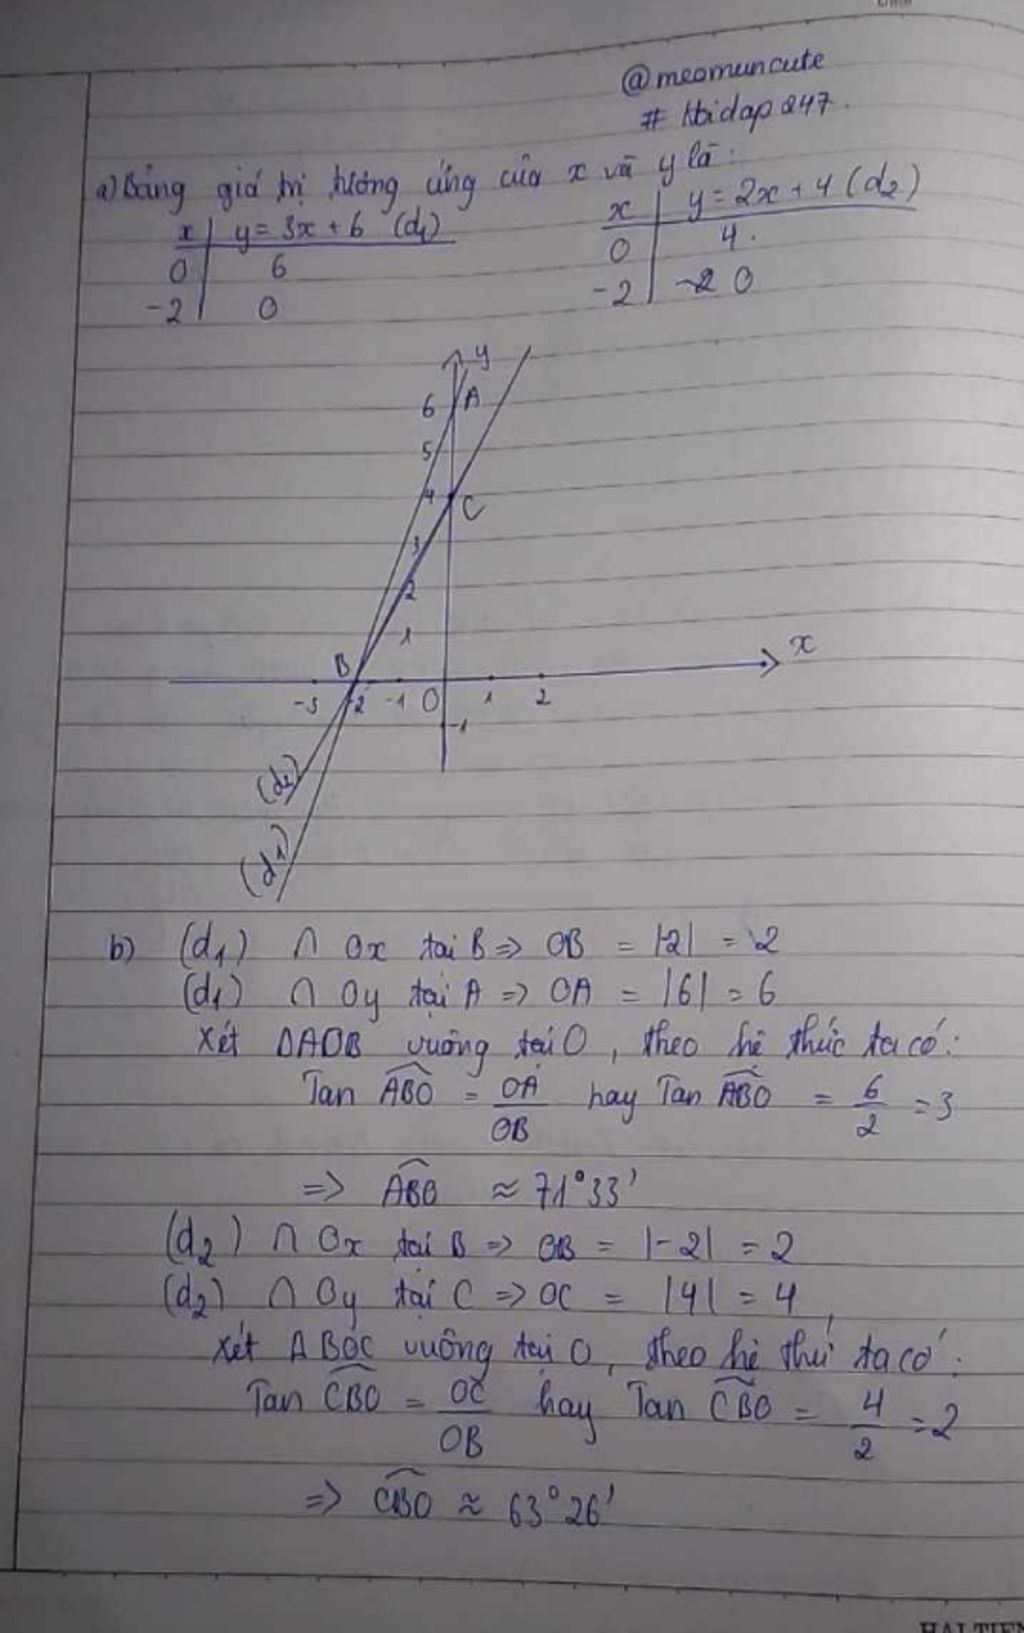 @meomuncute
# Hoidap247.
a) Bảng giá trị tương ứng của x và y là:
x | y = 3x + 6 (d₁)
0 | 6
-2 | 0
x | y = 2x + 4 (d₂)
0 | 4.
-2 | 0
y
6 A
5
4 C
3
2
1
B x
-3 -2 -1 O 1 2
-1
(d₂)
(d₁)
b) (d₁) ∩ Ox tại B => OB = |-2| = 2
(d₁) ∩ Oy tại A => OA = |6| = 6
Xét ΔAOB vuông tại O, theo hệ thức ta có:
Tan ABO = OA/OB hay Tan ABO = 6/2 = 3
=> ABO ≈ 71°33'
(d₂) ∩ Ox tại B => OB = |-2| = 2
(d₂) ∩ Oy tại C => OC = |4| = 4
Xét Δ BOC vuông tại O, theo hệ thứ ta có:
Tan CBO = OC/OB hay Tan CBO = 4/2 = 2
=> CBO ≈ 63°26'